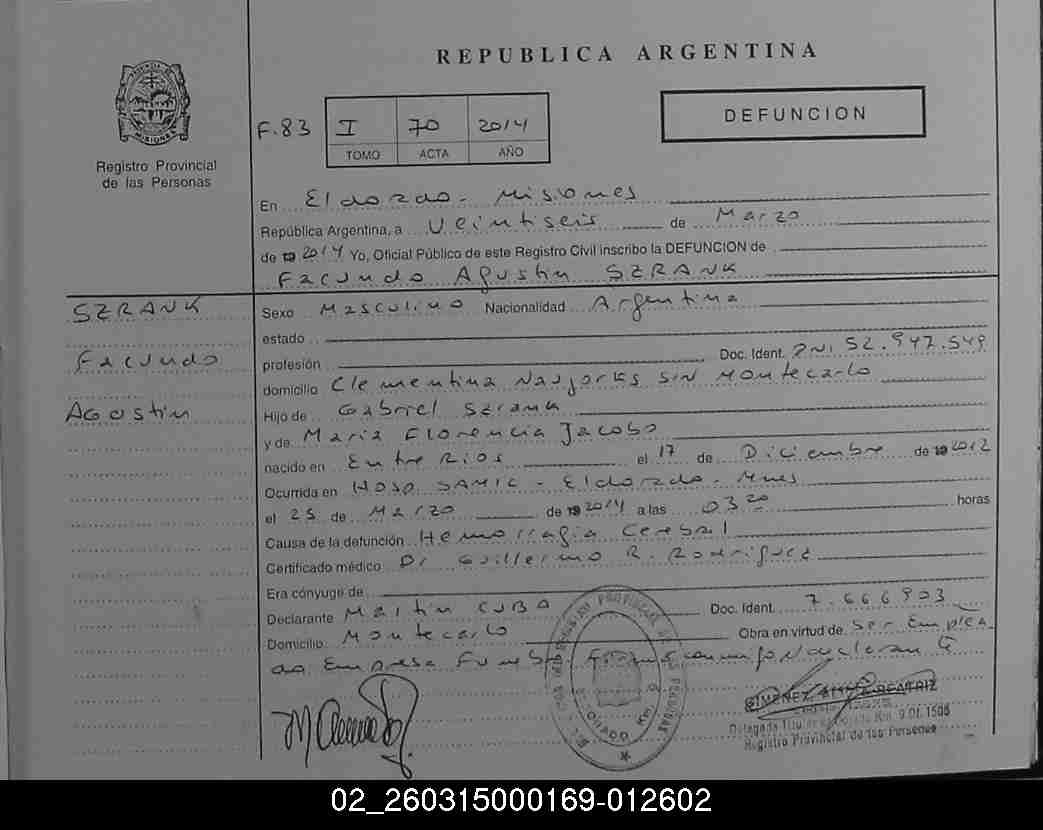 REPUBLICA ARGENTINA
PROVINCIA DE MISIONES
Registro Provincial
de las Personas
F.83 I 70 2014
TOMO ACTA AÑO
DEFUNCION
En Eldorado - Misiones
República Argentina, a Veintiseis de Marzo
de 2014 Yo, Oficial Público de este Registro Civil inscribo la DEFUNCION de
Facundo Agustin SZRANK
SZRANK
Facundo
Agustin
Sexo Masculino Nacionalidad Argentina
estado
profesión Doc. Ident. DNI 52.947.549
domicilio Clementina S/N Montecarlo
Hijo de Gabriel Szrank
y de Maria Florencia Jacobo
nacido en Entre Rios el 17 de Diciembre de 2012
Ocurrida en Hosp SAMIC - Eldorado - Mnes
el 25 de Marzo de 2014 a las 03 20 horas
Causa de la defunción Hemorragia Cerebral
Certificado médico Dr Guillermo R. Rodriguez
Era cónyuge de
Declarante Martin CUBA Doc. Ident. 7.666.903
Domicilio Montecarlo Obra en virtud de Ser Emplea
do Empresa Funebre
GIMENEZ BEATRIZ
Delegada Km. 9 Of. 1505
Registro Provincial de las Personas
02_260315000169-012602